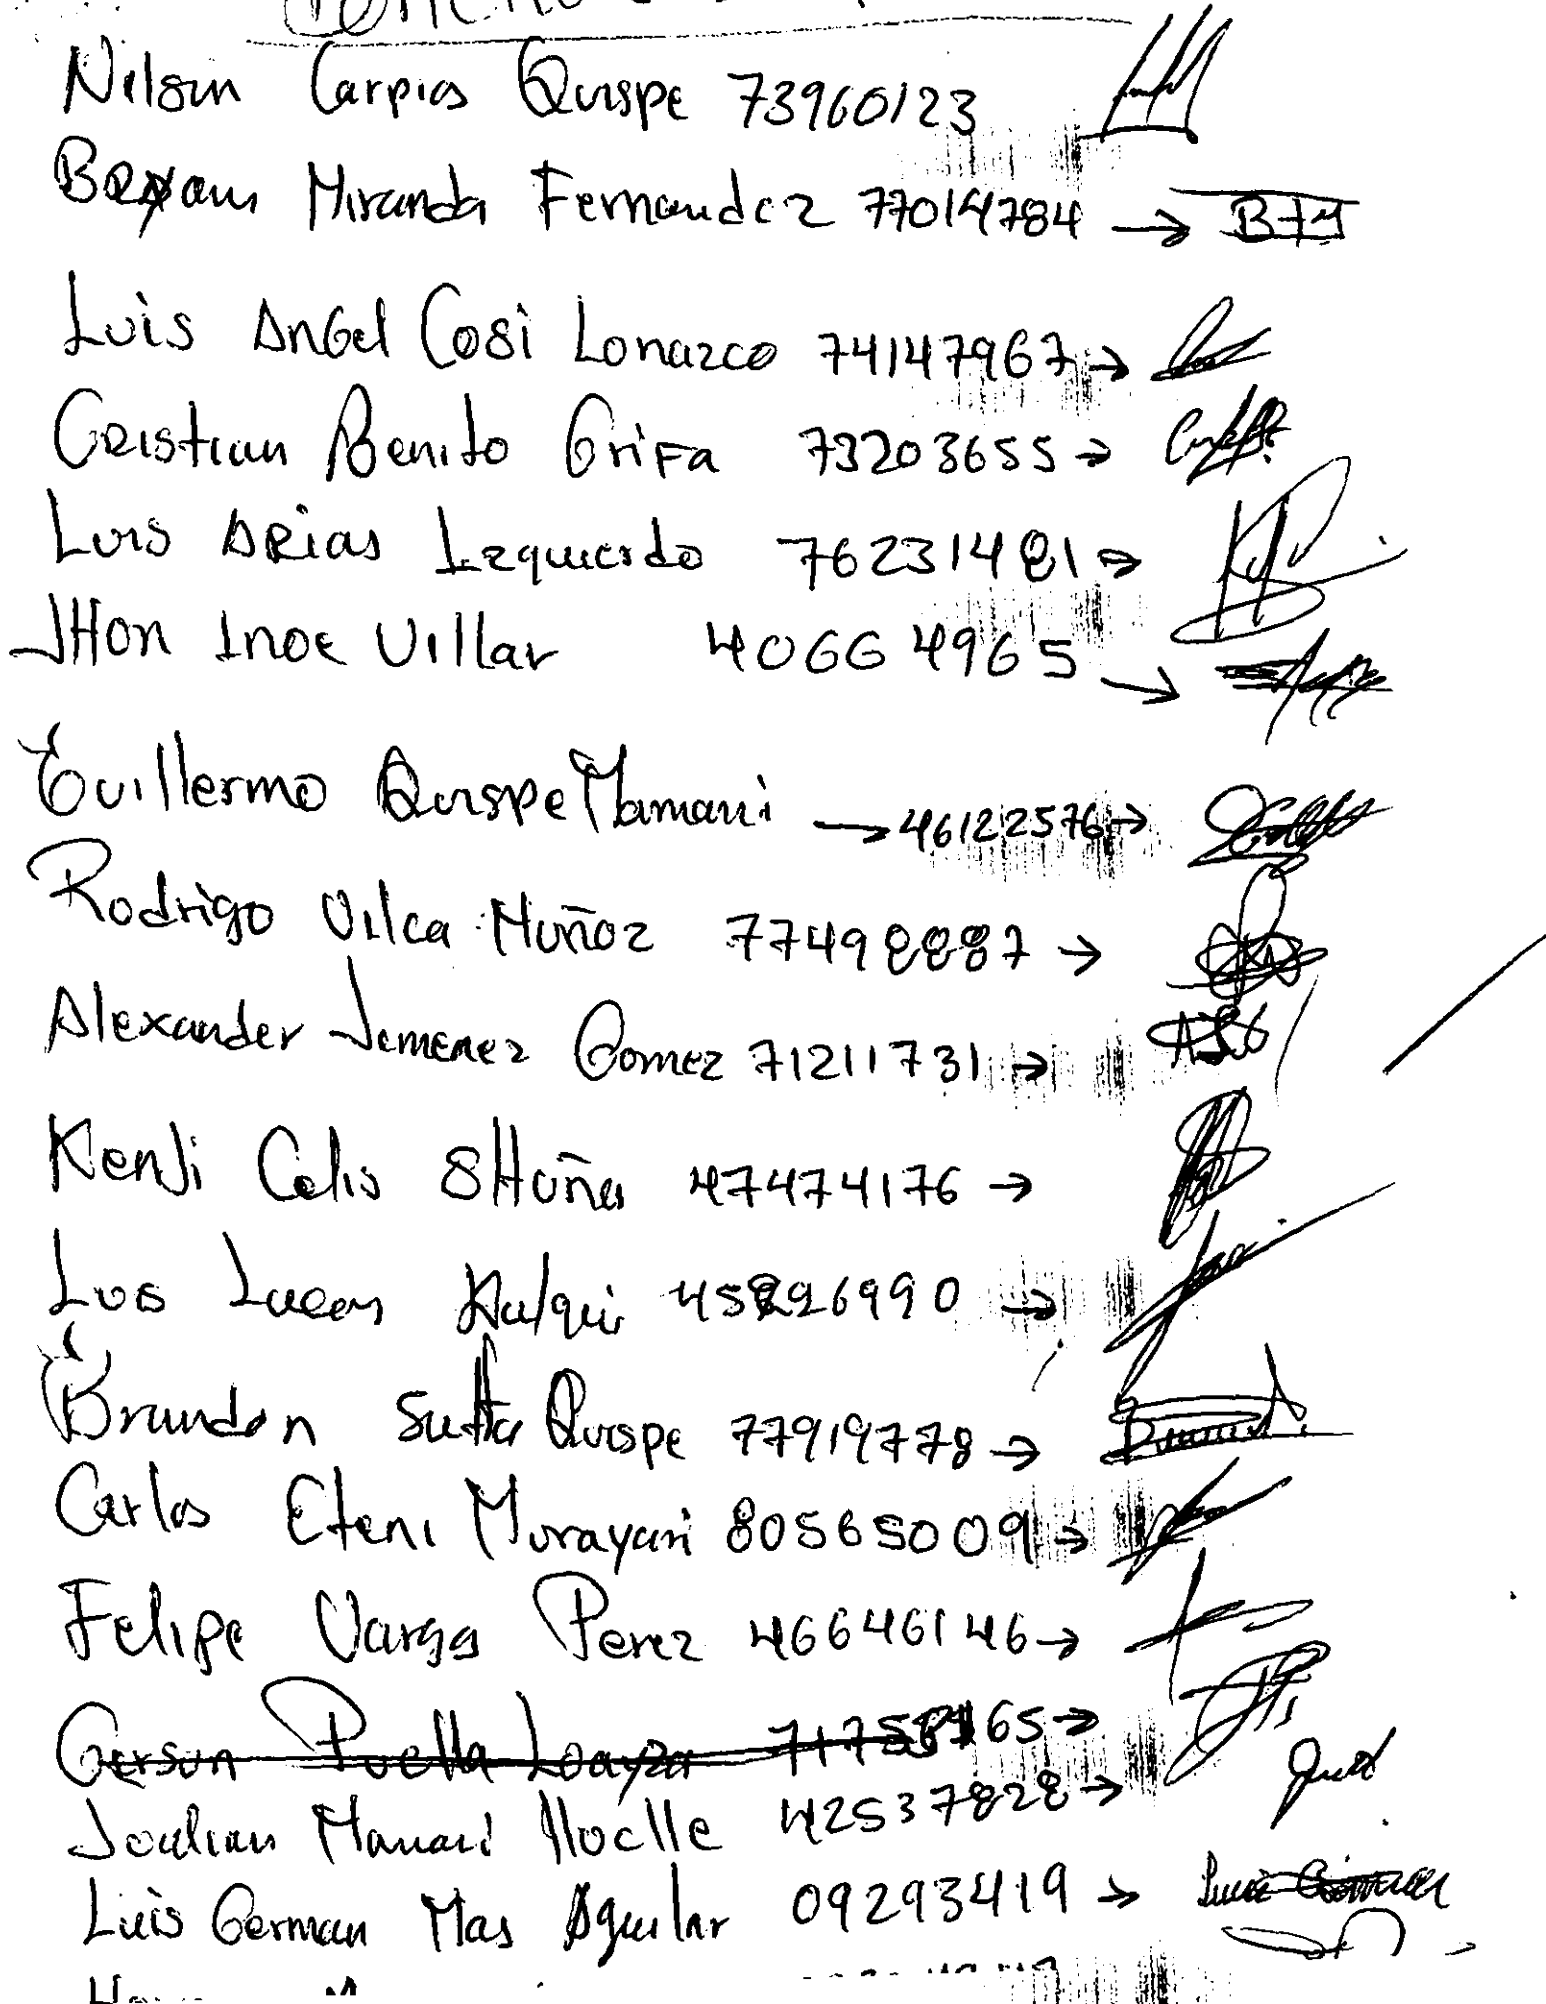 Nilson Carpios Quispe 73960123
Bryam Miranda Fernandez 77014784 → BFM
Luis Angel Cosi Lonazco 74147967 →
Cristian Benito Grifa 73203655 →
Luis Arias Izquierdo 76231481 →
JHon Inoe Villar 40664965 →
Guillermo Quispe Mamani → 46122576 →
Rodrigo Vilca Muñoz 77498887 →
Alexander Jemenez Gomez 71211731 →
Kenji Celis SHuña 47474176 →
Luis Lucas 6990 →
Brandon Sutta Quispe 77919778 →
Carlos Eteni Murayari 80565009 →
Felipe Vargas Perez 46646146 →
Gerson Puella Loayza 65 →
Mamani 42537828 →
Luis German Mas Aguilar 09293419 →